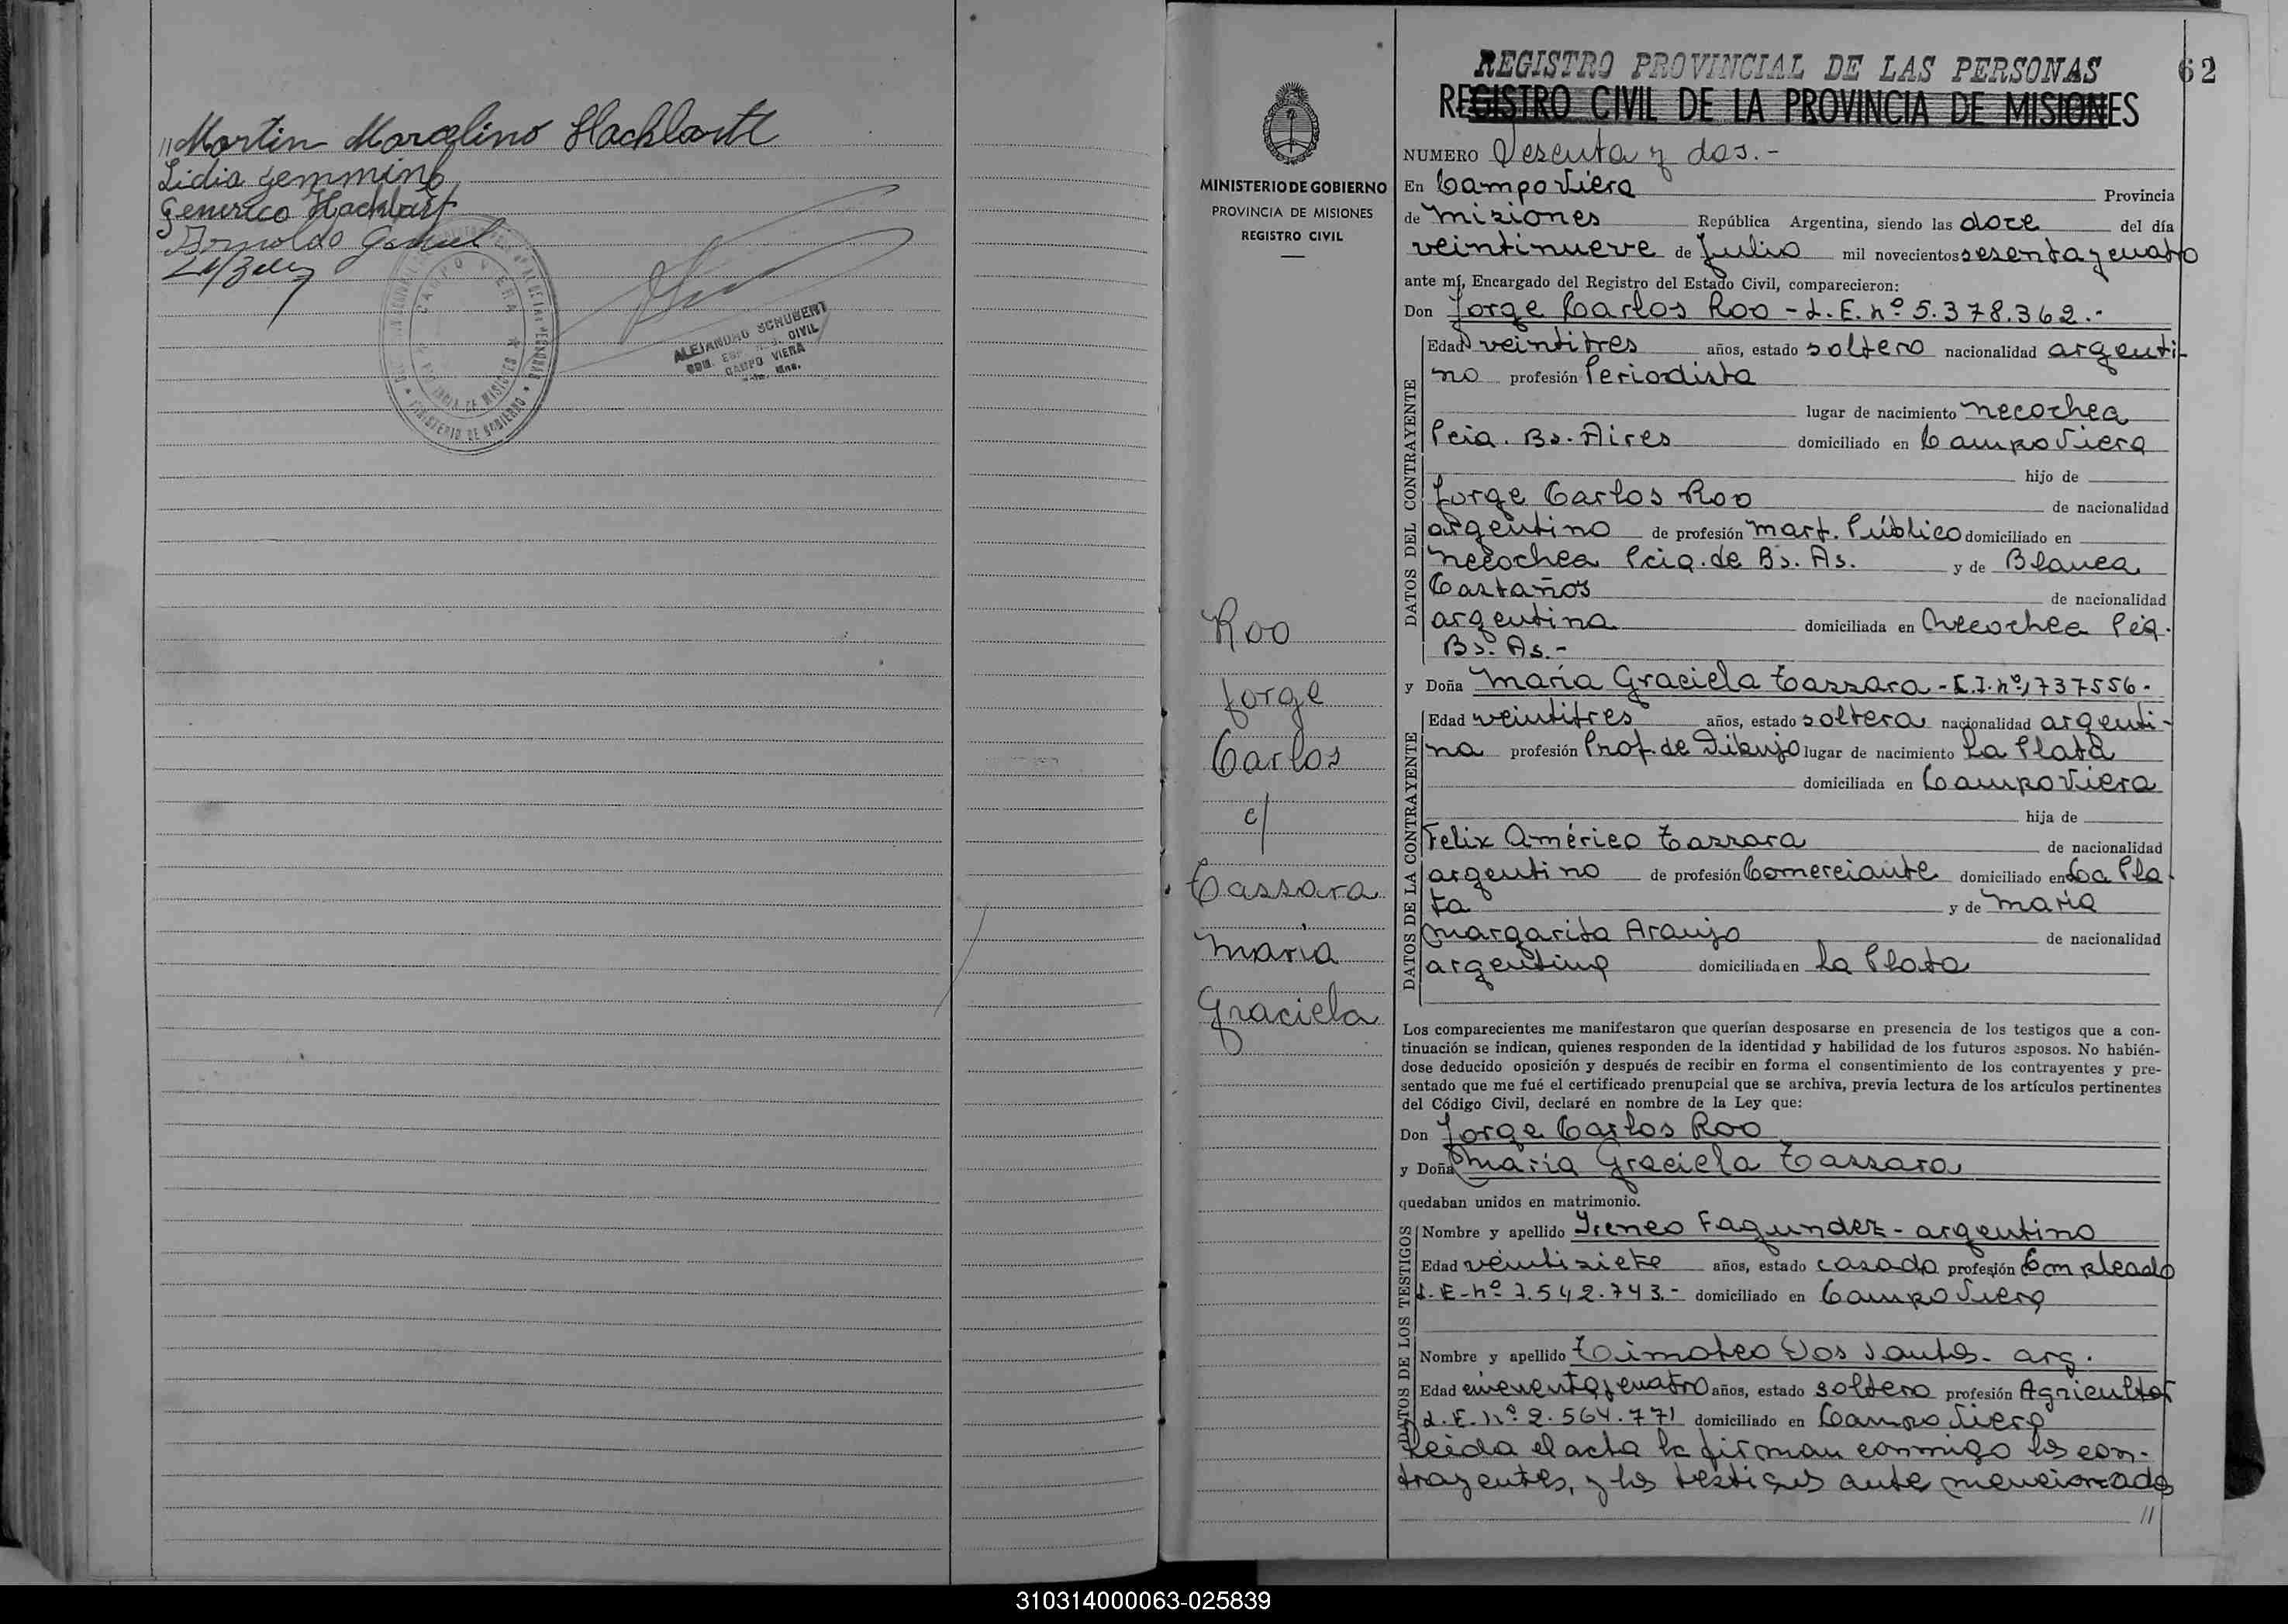 "Martin Marcelino Hachbartt
Lidia Gemming
Generico Hachbart
Arnoldo
CAMPO VIERA
PROVINCIA DE MISIONES
MINISTERIO DE GOBIERNO
ALEJANDRO SCHUBERT
CIVIL
CAMPO VIERA
Mns.
REGISTRO PROVINCIAL DE LAS PERSONAS
62
REGISTRO CIVIL DE LA PROVINCIA DE MISIONES
MINISTERIO DE GOBIERNO
PROVINCIA DE MISIONES
REGISTRO CIVIL
Roo
Jorge
Carlos
c/
Tassara
María
Graciela
NUMERO Sesenta y dos.-
En Campo Viera Provincia
de Misiones República Argentina, siendo las doce del día
veintinueve de Julio mil novecientos sesenta y cuatro
ante mí, Encargado del Registro del Estado Civil, comparecieron:
Don Jorge Carlos Roo - L.E. nº 5.378.362.-
DATOS DEL CONTRAYENTE
Edad veintitres años, estado soltero nacionalidad argenti-
no profesión Periodista
lugar de nacimiento Necochea
Pcia. Bs. Aires domiciliado en Campo Viera
hijo de
Jorge Carlos Roo de nacionalidad
argentino de profesión Mart. Público domiciliado en
Necochea Pcia. de Bs. As. y de Blanca
Castaños de nacionalidad
argentina domiciliada en Necochea Pcia.
Bs. As.-
y Doña María Graciela Tassara - C.I. nº 1737556-
DATOS DE LA CONTRAYENTE
Edad veintitres años, estado soltera nacionalidad argenti-
na profesión Prof. de Dibujo lugar de nacimiento La Plata
domiciliada en Campo Viera
hija de
Felix Américo Tassara de nacionalidad
argentino de profesión Comerciante domiciliado en La Pla-
ta y de María
Margarita Araujo de nacionalidad
argentina domiciliada en La Plata
Los comparecientes me manifestaron que querían desposarse en presencia de los testigos que a con-
tinuación se indican, quienes responden de la identidad y habilidad de los futuros esposos. No habién-
dose deducido oposición y después de recibir en forma el consentimiento de los contrayentes y pre-
sentado que me fué el certificado prenupcial que se archiva, previa lectura de los artículos pertinentes
del Código Civil, declaré en nombre de la Ley que:
Don Jorge Carlos Roo
y Doña María Graciela Tassara
quedaban unidos en matrimonio.
DATOS DE LOS TESTIGOS
Nombre y apellido Ireneo Fagundez - argentino
Edad veintisiete años, estado casado profesión Empleado
L.E. nº 7.542.743.- domiciliado en Campo Viera
Nombre y apellido Timoteo Dos Santos - arg.
Edad cincuenta y cuatro años, estado soltero profesión Agricultor
L.E. nº 2.564.771 domiciliado en Campo Viera
Leida el acta la firman conmigo los con-
trayentes, y los testigos ante mencionados
//
310314000063-025839